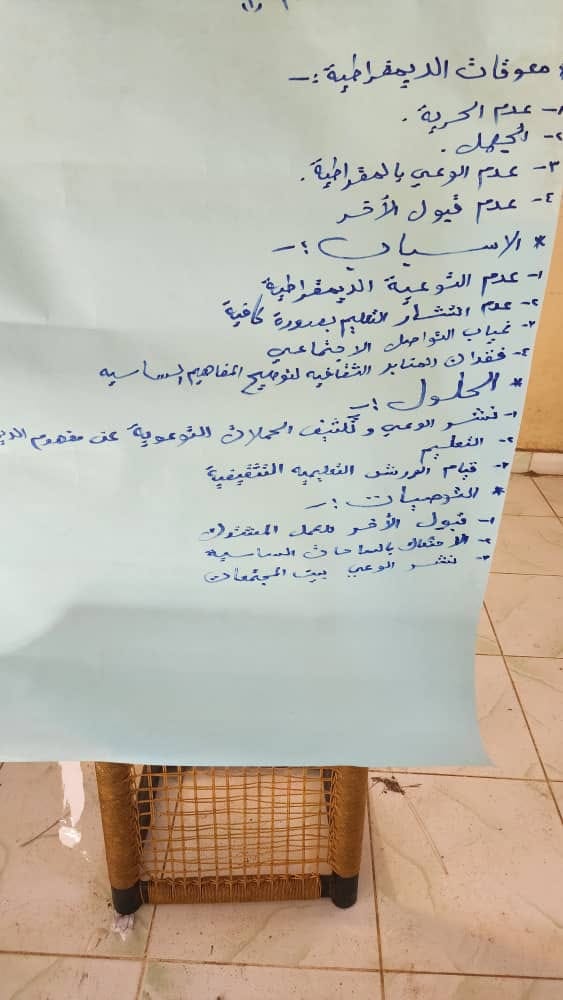 * معوقات الديمقراطية :-
١- عدم الحرية .
٢- الجهل .
٣- عدم الوعي بالمقراطية .
٤- عدم قبول الأخر
* الاسباب :-
١- عدم التوعية الديمقراطية
٢- عدم انتشار التعليم بصورة كافية
٣- غياب التواصل الاجتماعي
٤- فقدان المنابر الثقافيه لتوضيح المفاهيم السياسيه
* الحلول :-
١- نشر الوعي و تكثيف الحملات التوعوية عن مفهوم
٢- التعليم
٣- قيام الورش التعليميه التثقيفية
* التوصيات :-
١- قبول الأخر للعمل المشترك
٢- بالساحات السياسية
٣- نشر الوعي بين المجتمعات